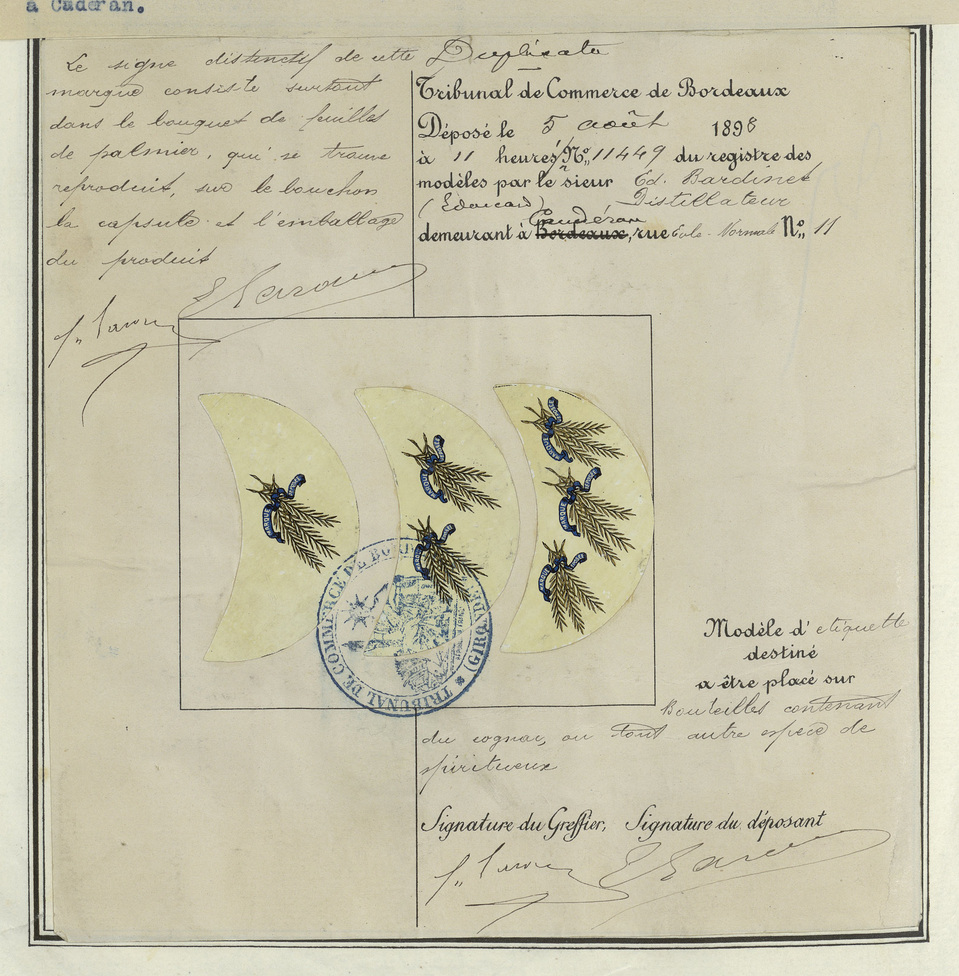 à Caderan.
Le signe distinctif de cette
marque consiste surtout
dans le bouquet de feuilles
de palmier, qui se trouve
reproduit, sur le bouchon
la capsule et l'emballage
du produit
Duplicata
Tribunal de Commerce de Bordeaux
Déposé le 5 août 1898
à 11 heures, No. 11449 du registre des
modèles par le sieur Ed. Bardinet
(Edouard) Distillateur
Caudéran
demeurant à Bordeaux, rue Ecole-Normale No. 11
MARQUE
MARQUE
MARQUE
MARQUE
TRIBUNAL DE COMMERCE DE BORDEAUX (GIRONDE)
Modèle d'etiquette
destiné
a être placé sur
Bouteilles contenant
du cognac, ou tout autre espèce de
spiritueux
Signature du Greffier, Signature du déposant